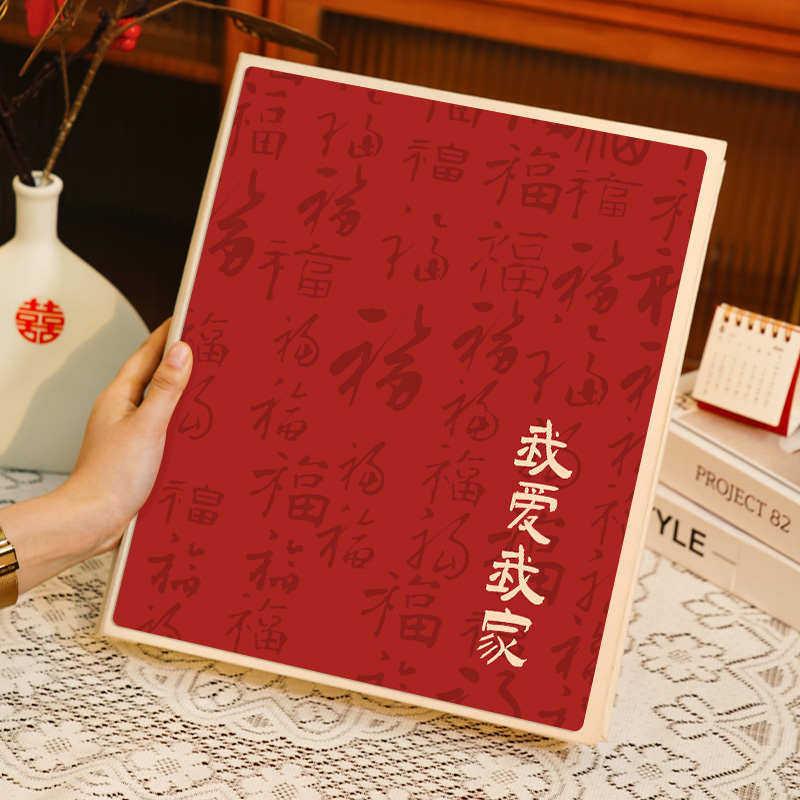 我爱我家
囍
PROJECT 82
TYLE
福 福 福 福 福 福
福 福 福 福 福 福
福 福 福 福 福 福
福 福 福 福 福 福